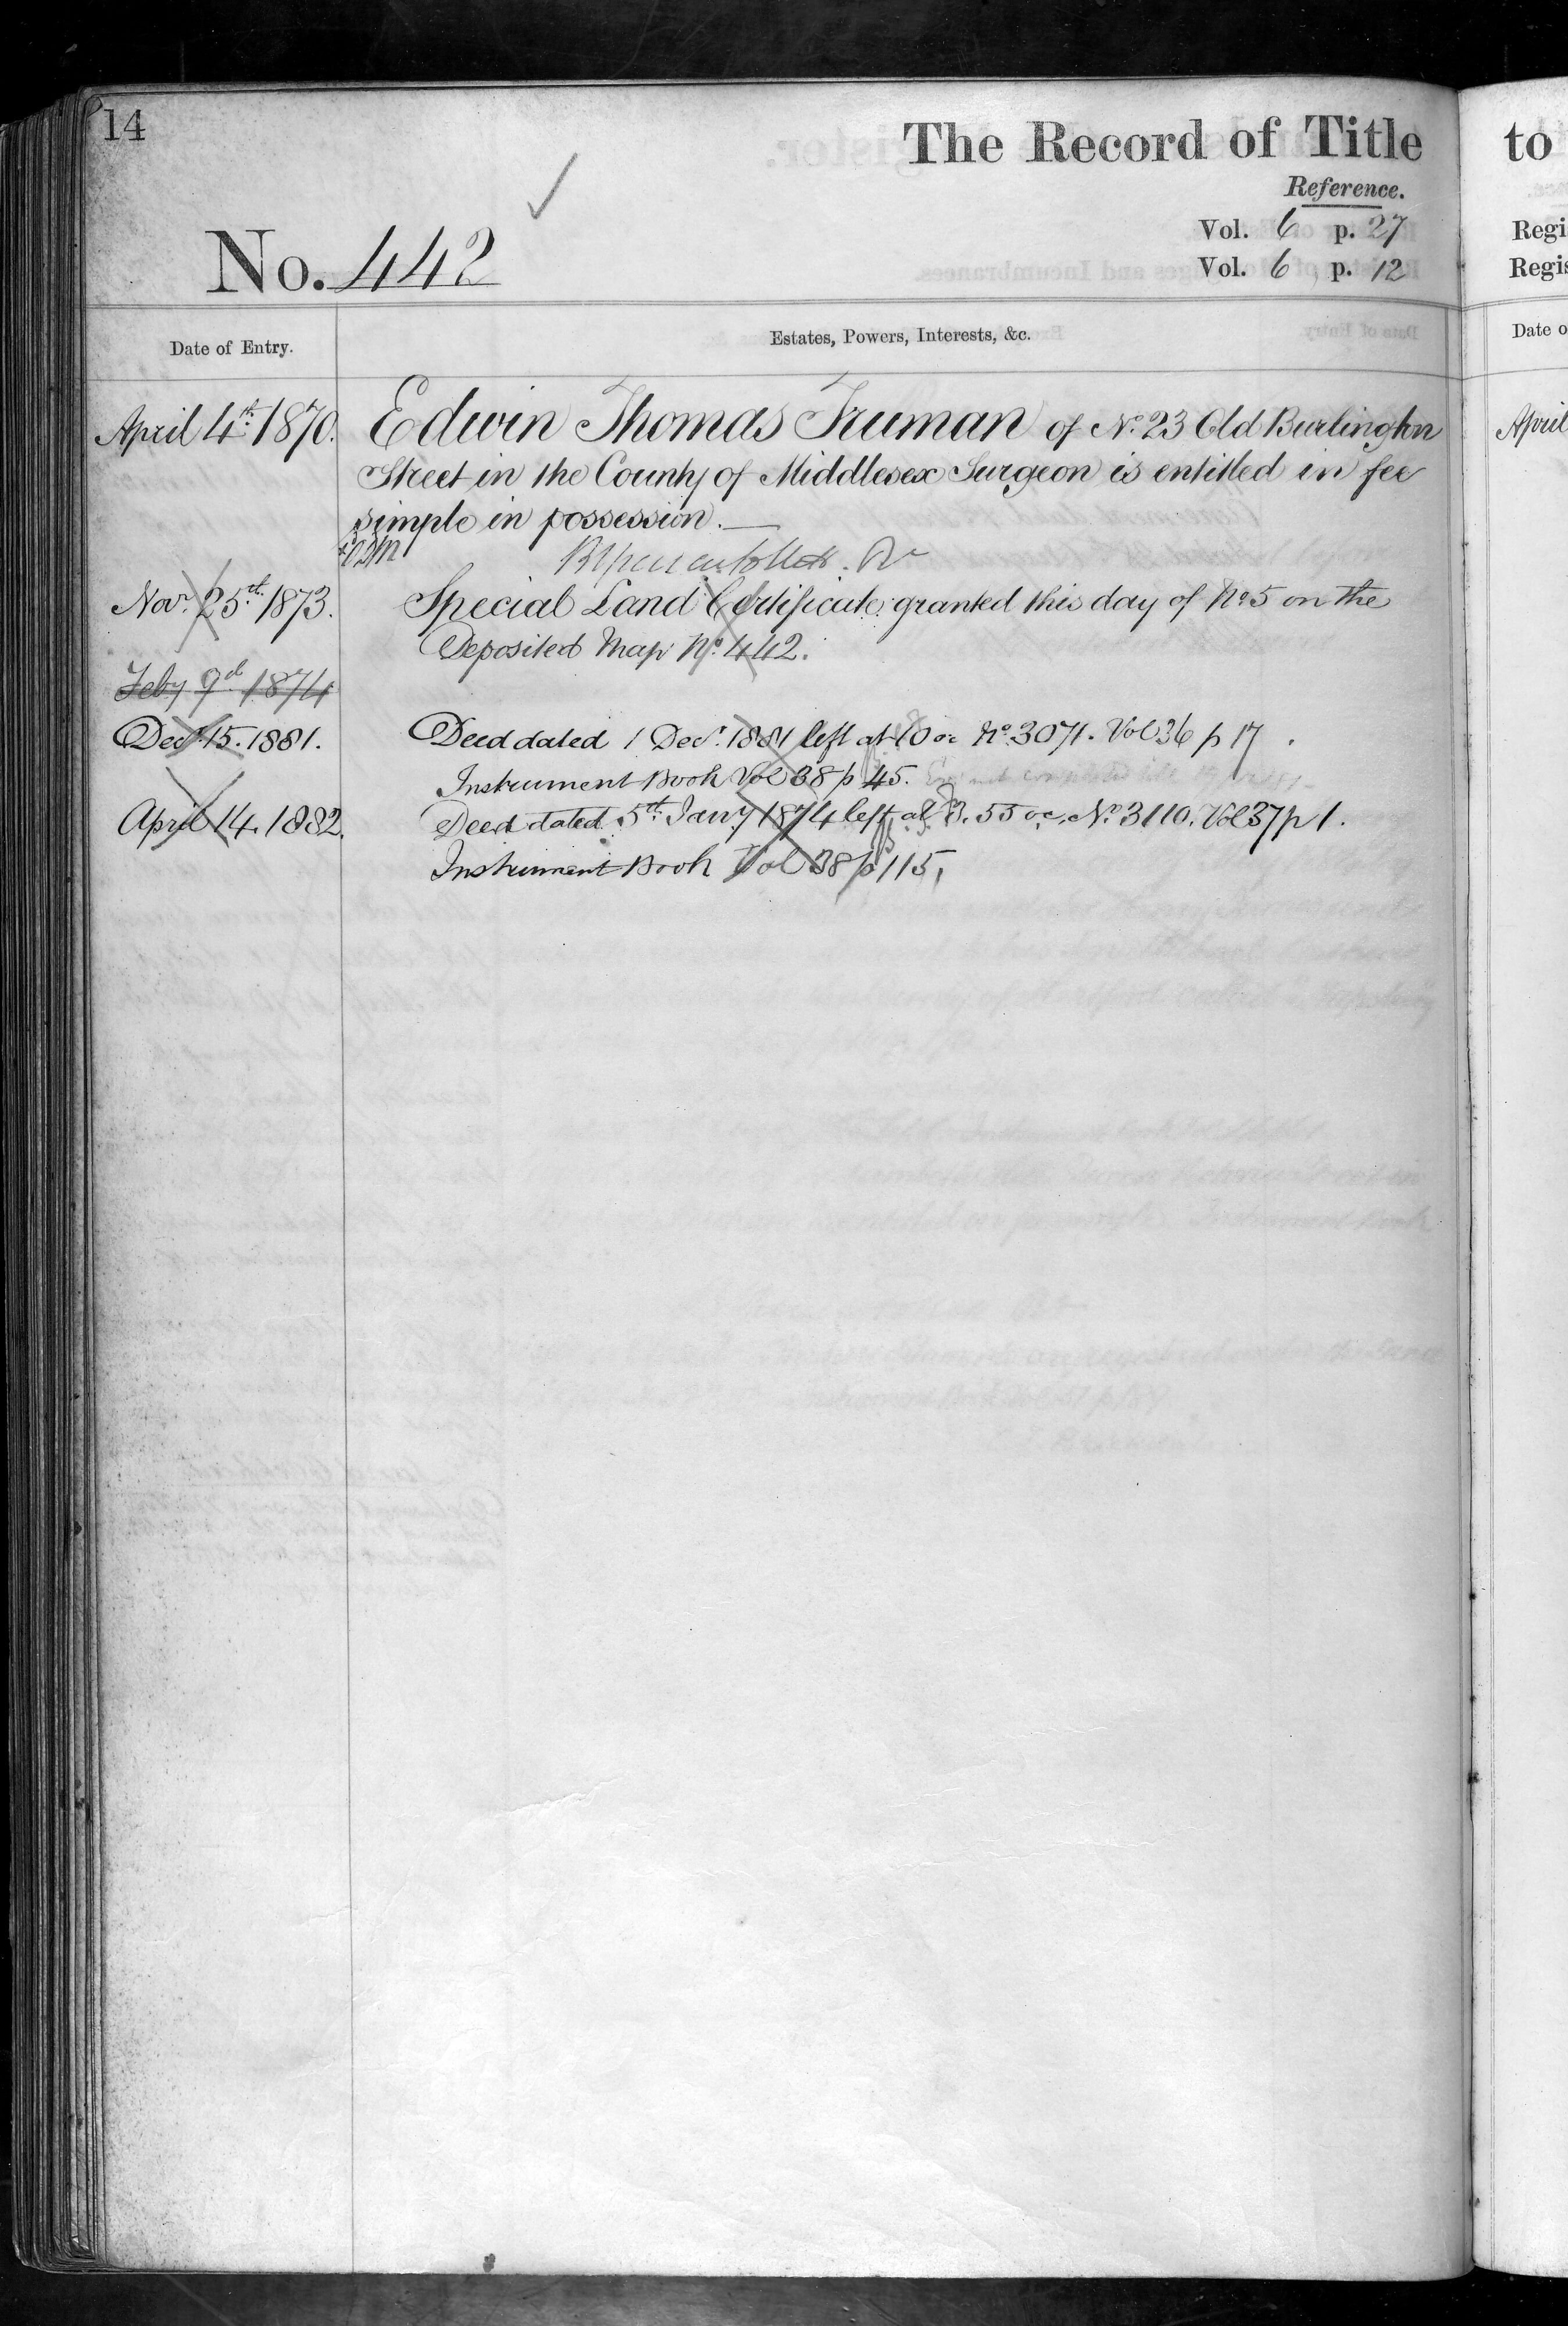 14
The Record of Title
to
Reference.
Vol. 6 p. 27
Regi
No. 442
Vol. 6 p. 12
Regis
Date of Entry.
Estates, Powers, Interests, &c.
Date o
April 4th. 1870.
Edwin Thomas Truman of No. 23 Old Burlington
April
Street in the County of Middlesex Surgeon is entitled in fee
simple in possession.—
Nov. 25th. 1873.
Special Land Certificate granted this day of No. 5 on the
Deposited Map No. 442.
Feby 9d 1874
Decr. 15. 1881.
Deed dated 1 Decr. 1881 left at 10 oc No. 3071. Vol 36 p 17.
Instrument Book Vol 38 p 45.
April 14. 1882.
Deed dated 5th. Jany 1874 left at 3.55 oc. No. 3110. Vol 37 p 1.
Instrument Book Vol 38 p 115,